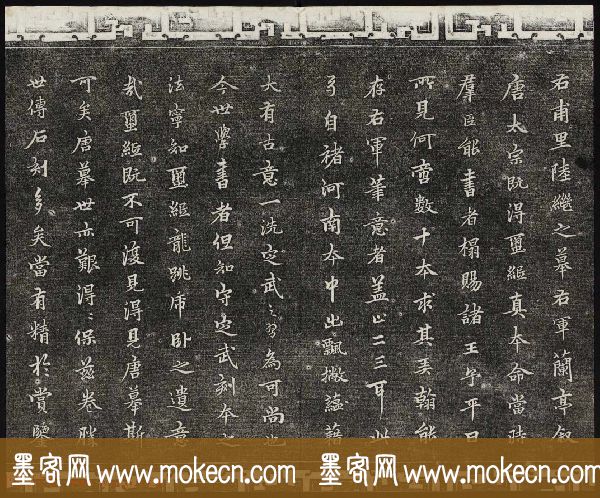 右甫里陸繼之摹右軍蘭亭敘
唐太宗既得璽紙真本命當時
羣臣能書者搨賜諸王余平日
所見何啻數十本求其美翰能
存右軍筆意者蓋止二三耳此
自褚河南本中出飄撇醞藉
大有古意一洗定武之習為可尚也
今世學書者但知守定武刻本之
法寧知璽紙龍跳虎臥之遺意
哉璽紙既不可復見得見唐摹斯
可矣唐摹世亦艱得得保茲卷勝
世傳石刻多矣當有精於賞鑒
墨客网 www.mokecn.com 墨客网 www.mokecn.com